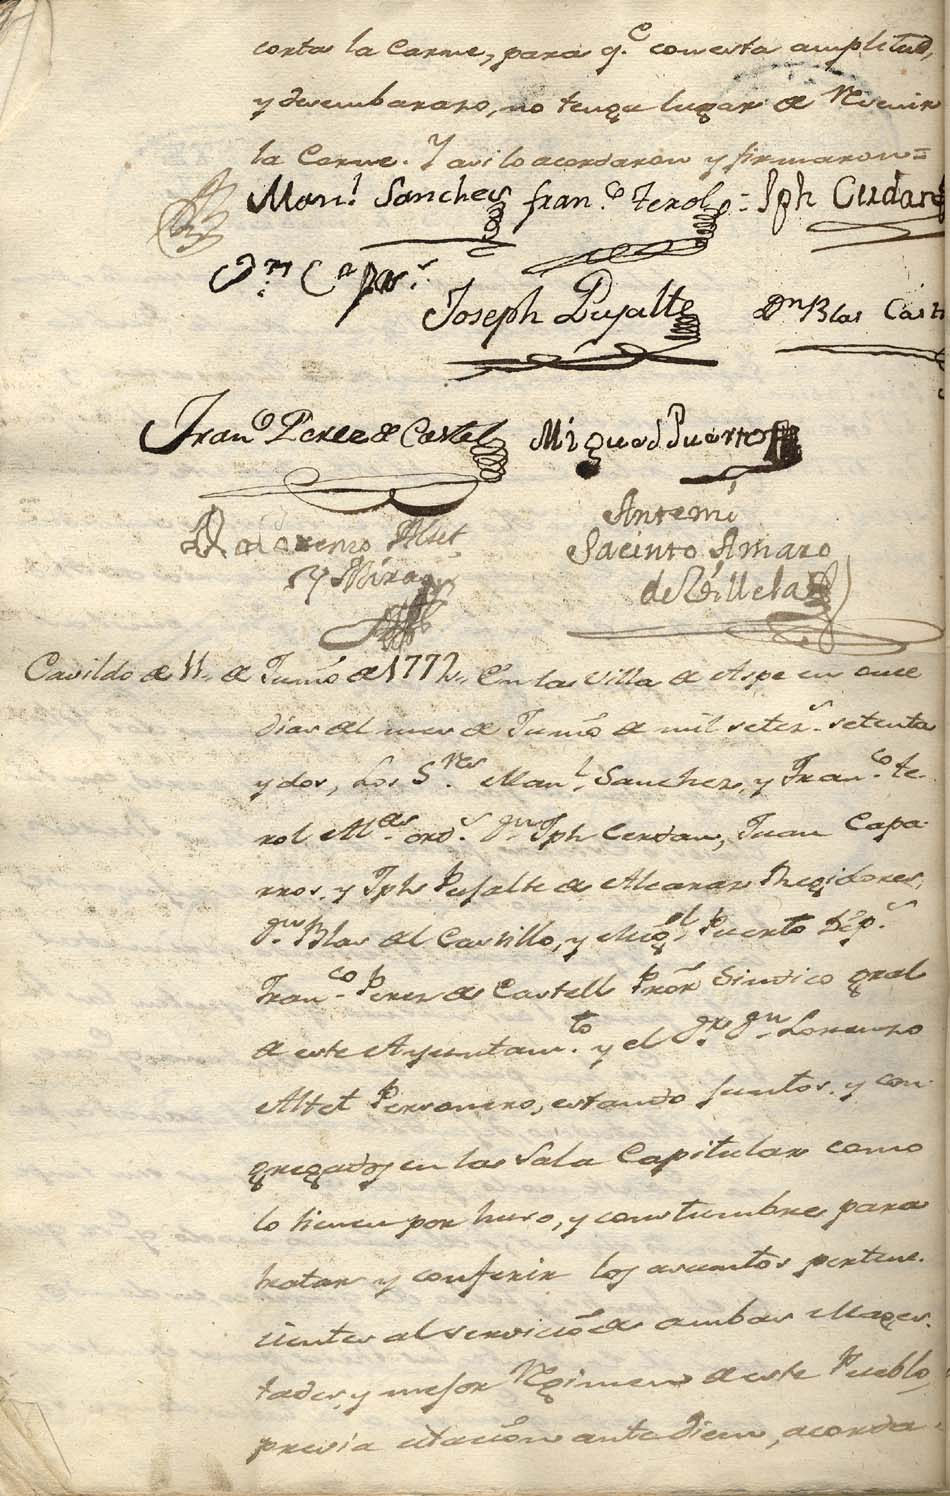 corta la Carne, para q.e con esta amplitud,
y desembarazo, no tenga lugar de Revenir
la Carne. Y asi lo acordaron y firmaron=
Man.l Sanchez fran.co terol = Jph Cerdan
Jn Capa.s
Joseph Pujalte Dn Blas Casti
Franco Perez de Castel Miguel Puerto
Dn Lorenzo Altet
y Mira
Antemi
Jacinto Amaro
de Villela
Cavildo de 11. de Junio de 1772. En la Villa de Aspe en once
dias del mes de Junio de mil setez.s setenta
y dos, Los S.res Man.l Sanchez, y Fran.co te-
rol Al.des ord.s Dn Jph Cerdan, Juan Capa-
rros, y Jph Pujalte de Alcaraz Regidores,
Dn Blas del Castillo, y Mig.l Puerto Dip.s
Fran.co Perez de Castell Pror Sindico gral
de este Ayuntam.to y el Dr Dn Lorenzo
Altet Personero, estando juntos, y con-
gregados en la Sala Capitular como
lo tienen por huso, y constumbre para
tratar y conferir los asuntos pertene-
cientes al servicio de ambas Mages-
tades, y mejor Regimen de este Pueblo,
previa citacion ante Diem, acorda-